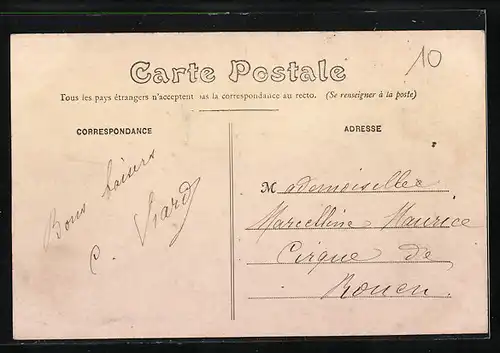 10
Carte Postale
Tous les pays étrangers n'acceptent pas la correspondance au recto. (Se renseigner à la poste)
CORRESPONDANCE
Bons baisers
C. Viard
ADRESSE
Mademoiselle
Marcelline Maurice
Cirque de
Rouen.